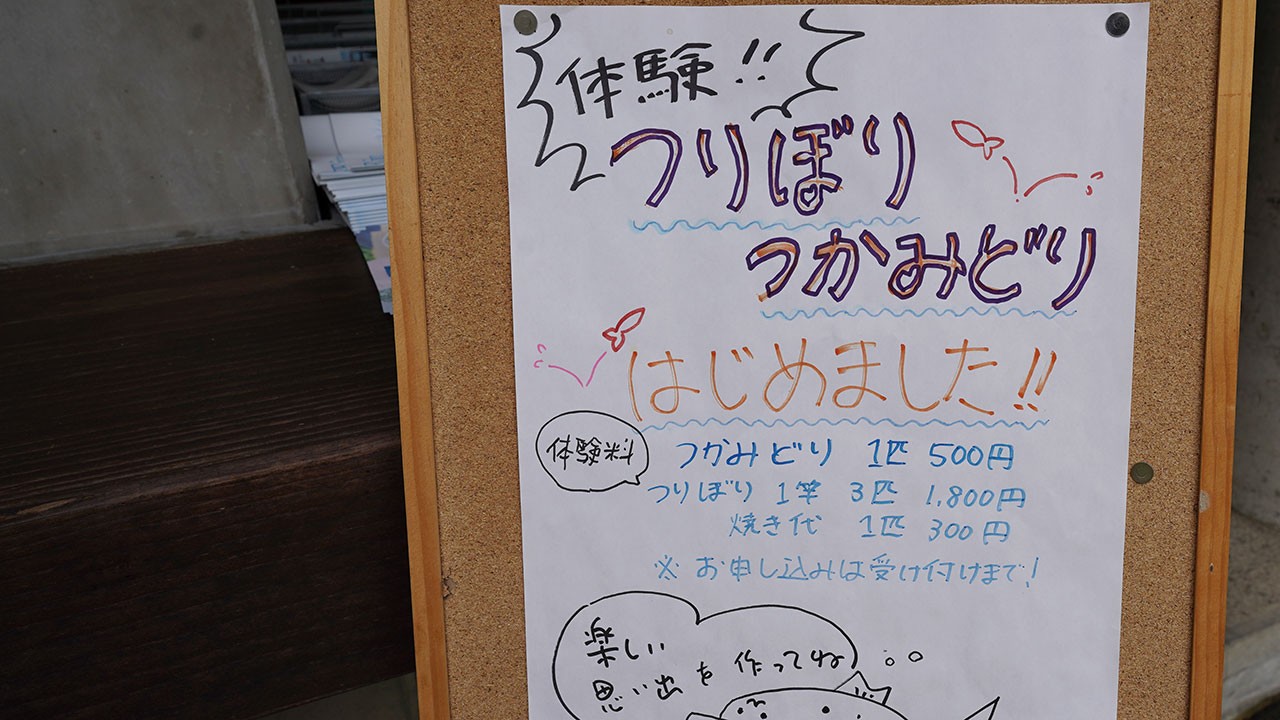 体験!!
つりぼり
つかみどり
はじめました!!
体験料
つかみどり 1匹 500円
つりぼり 1竿 3匹 1,800円
焼き代 1匹 300円
※ お申し込みは受け付けまで!
楽しい
思い出を作ってね